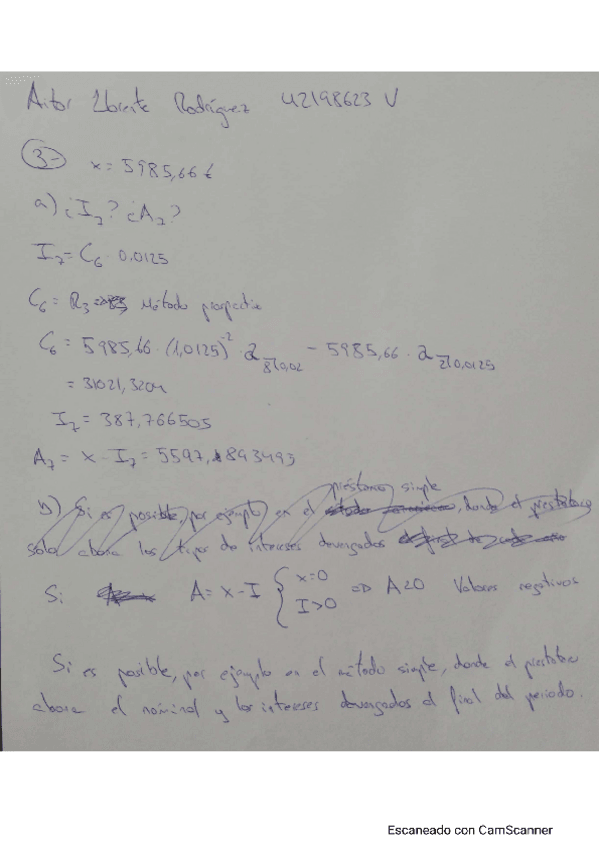 Aitor Llorente Rodríguez 42198623 V
3- x = 5985,66 €
a) ¿I₇? ¿A₇?
I₇ = C₆ · 0.0125
C₆ = R₃ Método prospectivo
C₆ = 5985,66 · (1,0125)⁻² · a 8⅂0,02 - 5985,66 · a 2⅂0,0125
= 31021,3204
I₇ = 387,766505
A₇ = x - I₇ = 5597,893493
b) Si es posible, por ejemplo en el préstamo simple, donde el prestatario
solo abona los tipos de intereses devengados
Si A = x - I { x=0 I>0 => A<0 Valores negativos
Si es posible, por ejemplo en el método simple, donde el prestatario
abona el nominal y los intereses devengados al final del periodo.
Escaneado con CamScanner